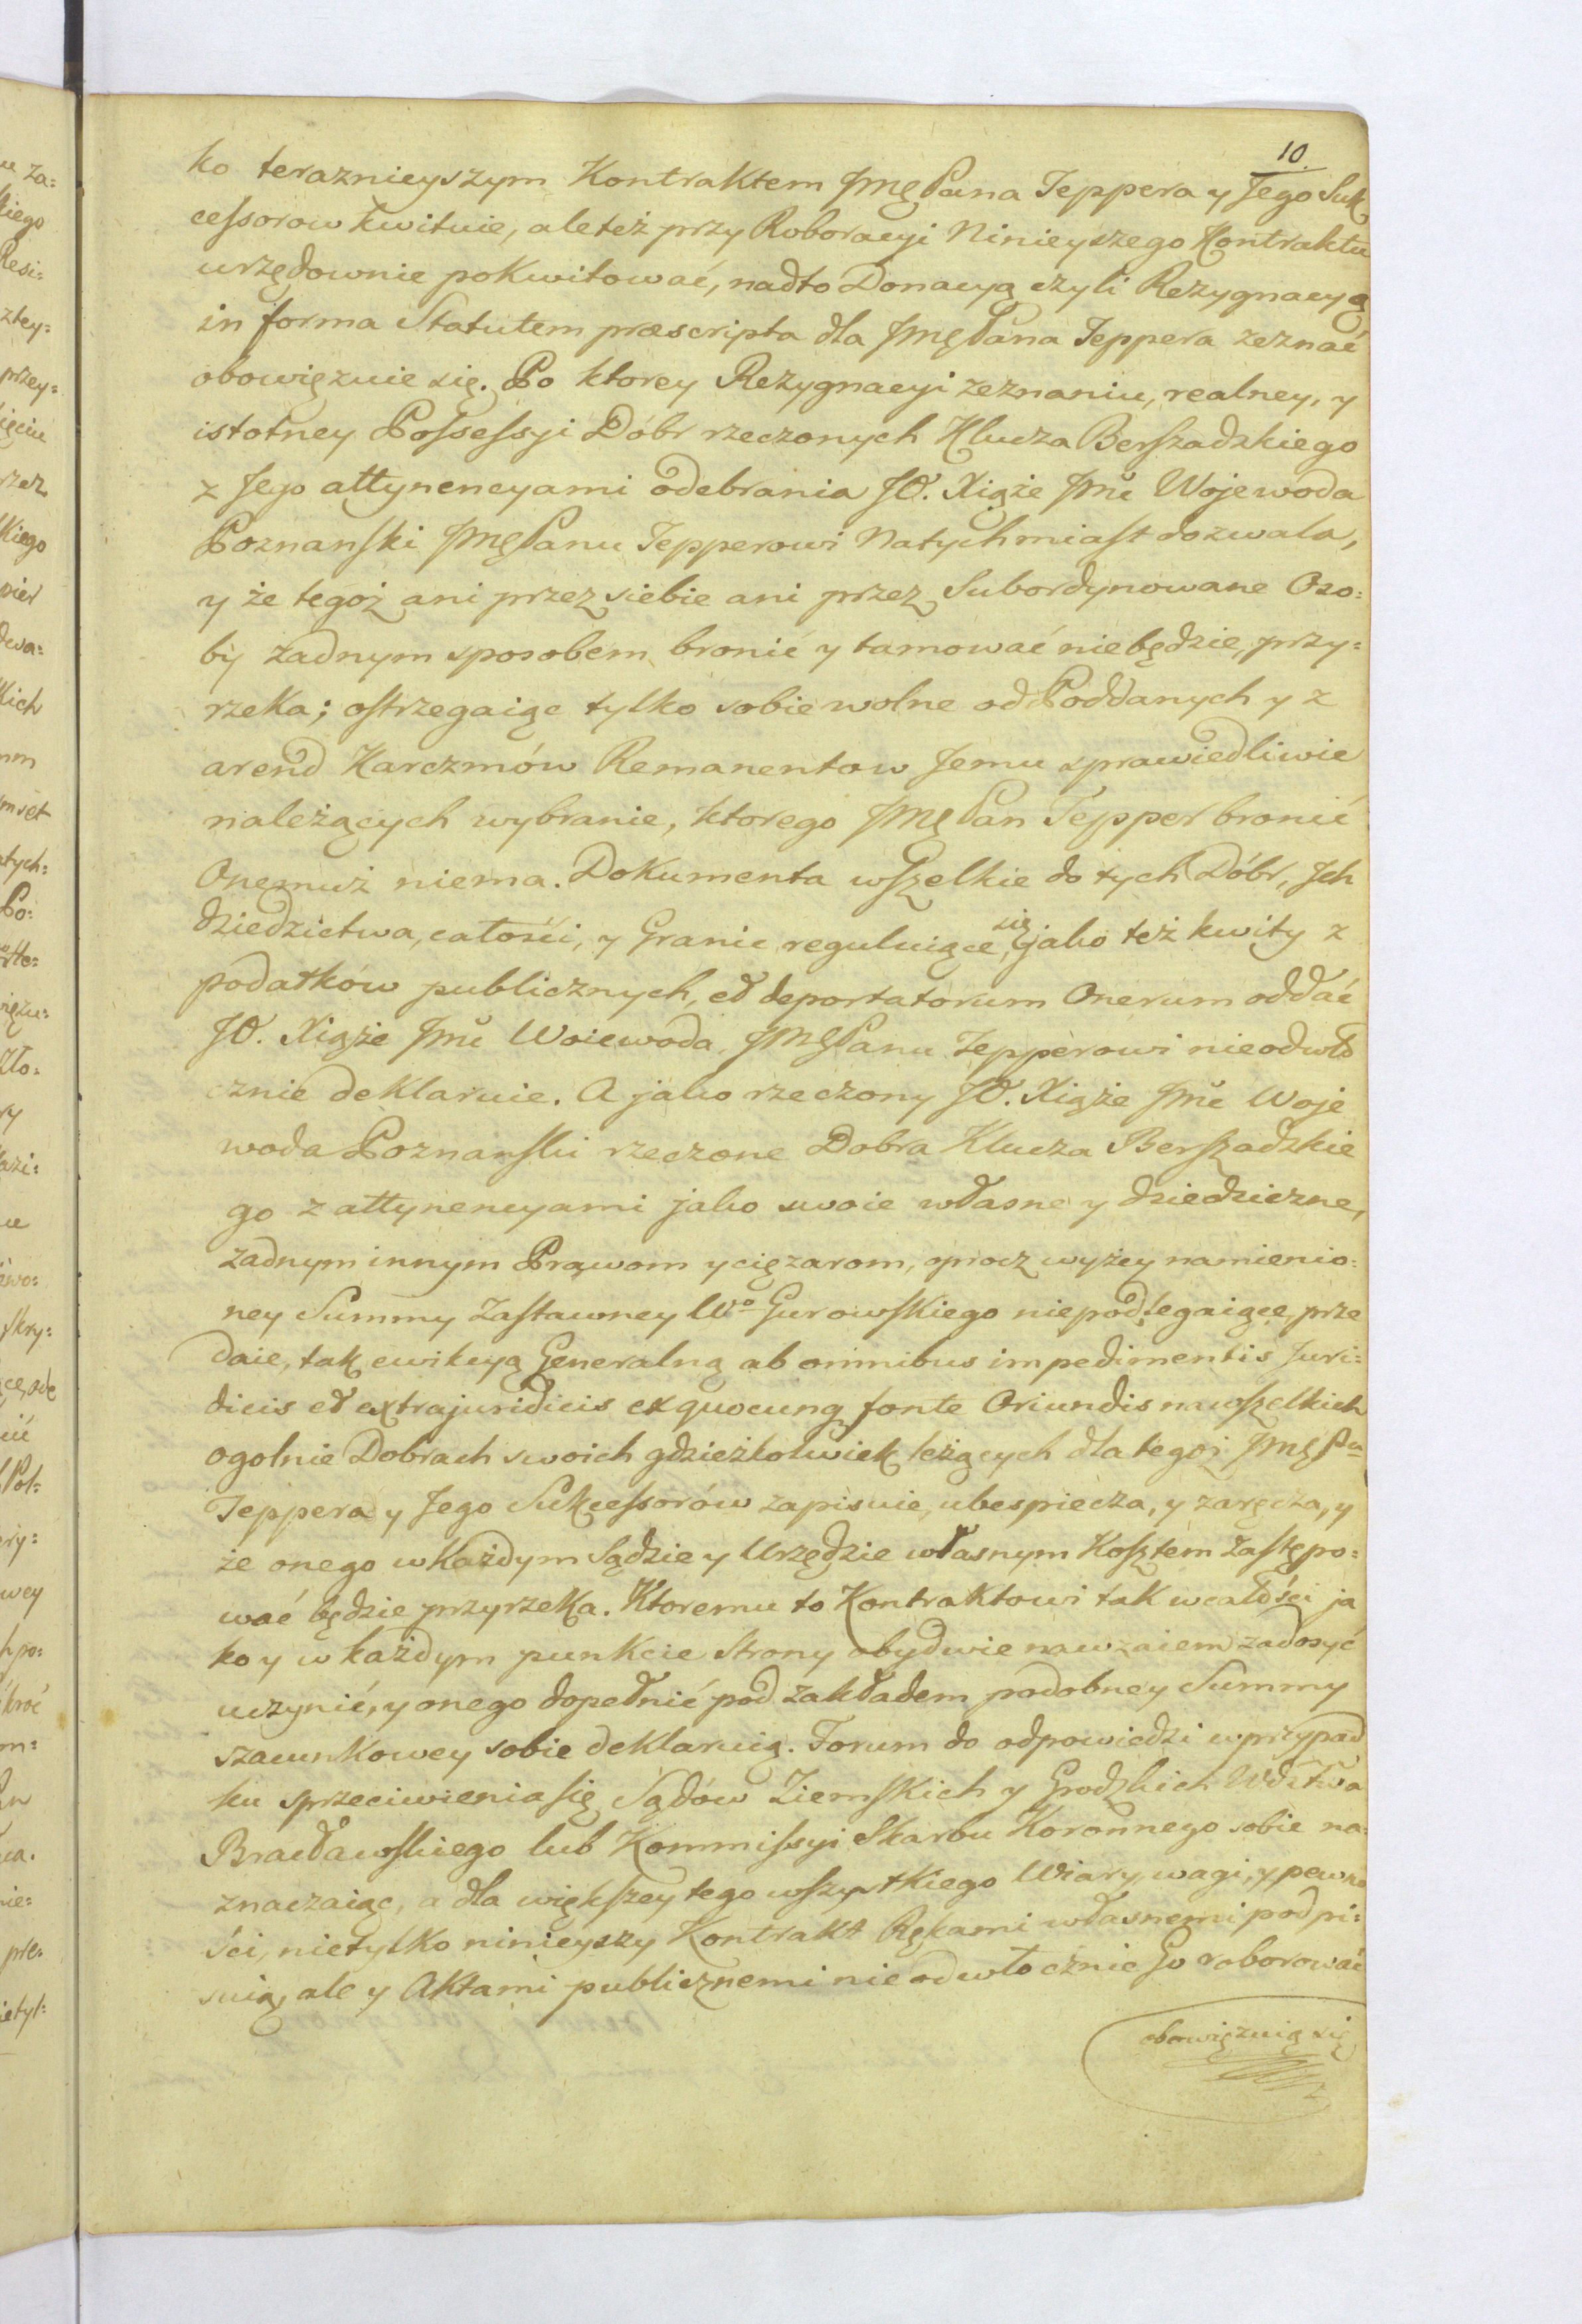 10.
ko teraznieyszym Kontraktem JmęPana Teppera y Jego Suk
cessorow kwituie, ale też przy Roboracyi Ninieyszego Kontraktu
urzędownie pokwitować, nadto Donacyą czyli Rezygnacyą
in forma Statutem præscripta dla JmęPana Teppera zeznać
obowięzuie się. Po ktorey Rezygnacyi zeznaniu, realney, y
istotney Possessyi Dóbr rzeczonych Klucza Berszadzkiego
z Jego attynencyami odebrania JO. Xiąże Jmć Wojewoda
Poznanski JmęPanu Tepperowi Natychmiast dozwala,
y że tegoż ani przez siebie ani przez Subordynowane Oso:
by żadnym sposobem bronić y tamować niebędzie, przy:
rzeka; ostrzegaiąc tylko sobie wolne od Poddanych y z
arend Karczmów Remanentow Jemu sprawiedliwie
należących wybranie, ktorego JmęPan Tepper bronić
Onemuż niema. Dokumenta wszelkie do tych Dóbr, Jch
dziedzictwa, całości, y Granic reguluiące się, jako też kwity z
podatków publicznych, et deportatorum Onerum oddać
JO. Xiąże Jmć Woiewoda JmęPanu Tepperowi nieodwło
cznie deklaruie. A jako rzeczony JO. Xiąże Jmć Woje
woda Poznanski rzeczone Dobra Klucza Berszadzkie
go z attynencyami jako swoie własne y dziedziczne,
żadnym innym Prawom y ciężarom, oprocz wyżey namienio:
ney Summy Zastawney Wo Gurowskiego niepodlegaiące, prze
daie, tak ewikcyą Generalną ab omnibus impedimentis Juri:
dicis et extrajuridicis ex quocunq fonte Oriundis na wszelkich
ogolnie Dobrach swoich gdzieżkolwiek leżących dla tegoż Jmę Pa
Teppera y Jego Sukcessorów zapisuie, ubespiecza, y zaręcza, y
że onego w Każdym Sądzie y Urzędzie własnym Kosztem Zastępo:
wać będzie przyrzeka. Ktoremu to Kontraktowi tak w całości ja
ko y w każdym punkcie Strony obydwie nawzaiem zadosyć
uczynić, y onego dopełnić pod zakładem podobney Summy
szacunkowey sobie deklaruią. Forum do odpowiedzi w przypad
ku sprzeciwienia się Sądów Ziemskich y Grodzkich Wdztwa
Bracławskiego lub Kommissyi Skarbu Koronnego sobie na:
znaczaiąc, a dla większey tego wszystkiego Wiary, wagi, y pewno
ści, nietylko ninieyszy Kontrakt Rękami własnemi podpi:
suią, ale y Aktami publicznemi nieodwłocznie Go roborować
obowięzuią się